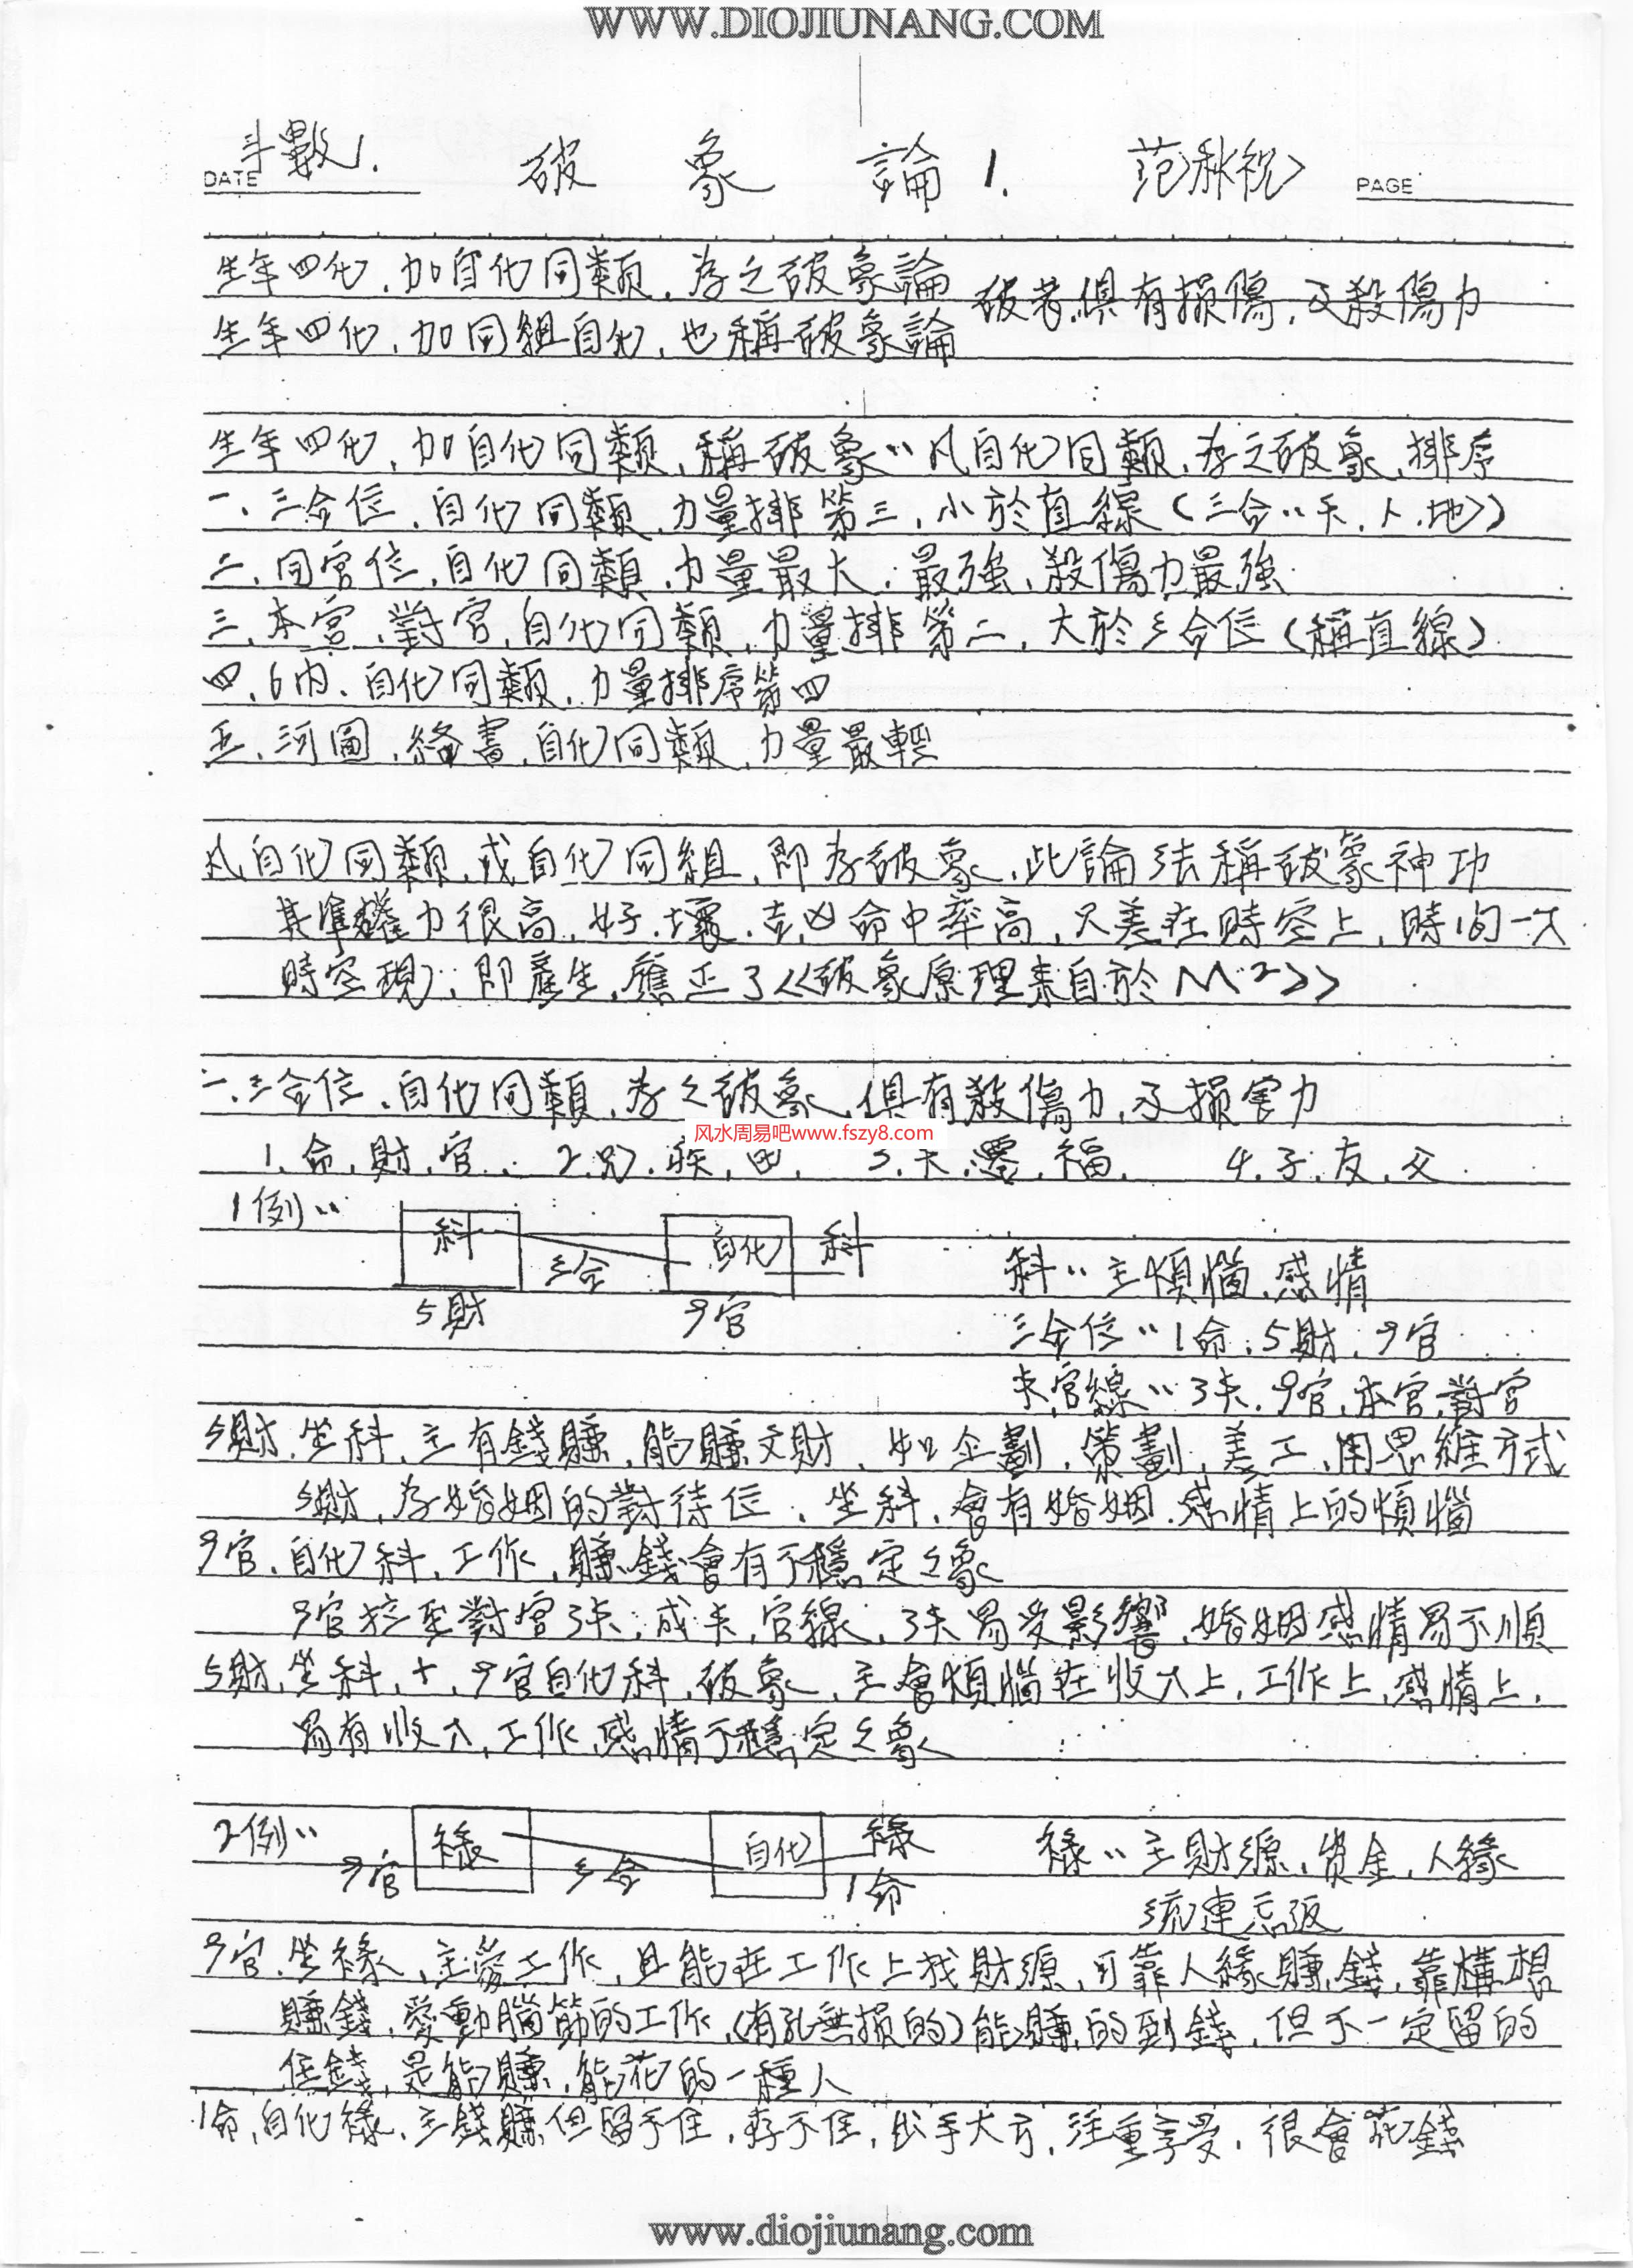 WWW.DIOJIUNANG.COM
斗數1. 破象論1. 范秋祝
DATE PAGE
生年四化,加自化同類,為之破象論 破者俱有損傷,及殺傷力
生年四化,加同組自化,也稱破象論
生年四化,加自化同類,稱破象"凡自化同類,為之破象,排序
一、三合位,自化同類,力量排第三,小於直線(三合"天,人,地)
二、同宮位,自化同類,力量最大,最強,殺傷力最強
三、本宮,對宮,自化同類,力量排第二,大於三合位(稱直線)
四、6內、自化同類,力量排序第四
五、河圖,絡書,自化同類,力量最輕
凡自化同類,或自化同組,即為破象,此論法稱破象神功
其準確力很高,好,壞,吉,凶命中率高,只差在時空上,時間一久
時空現,即產生,應正了<<破象原理來自於M²>>
一、三合位,自化同類,為之破象,俱有殺傷力,及損害力
风水周易吧www.fszy8.com
1,命,財,官, 2,兄,疾,田, 3,夫,遷,福, 4,子,友,父
1例"
科 三合 自化 科
科"主煩惱,感情
5財 9官
三合位"1命,5財,9官
夫,官線"3夫,9官,本宮,對宮
5財,坐科,主有錢賺,能賺文財,如企劃,策劃,美工,用思維方式
5財,為婚姻的對待位,坐科,會有婚姻,感情上的煩惱
9官,自化科,工作,賺錢會有不穩定之象
9官拉至對宮3夫,成夫,官線,3夫易受影響,婚姻感情易不順
5財,坐科,+,9官自化科,破象,主會煩惱在收入上,工作上,感情上,
易有收入,工作,感情不穩定之象
2例"
9官 祿 三合 自化 祿 1命
祿"主財源,資金,人緣
流連忘返
9官,坐祿,主愛工作,且能在工作上找財源,可靠人緣賺錢,靠構想
賺錢,愛動腦筋的工作,(有孔無損的)能賺的到錢,但不一定留的
住錢,是能賺,能花的一種人
1命,自化祿,主錢賺但留不住,存不住,出手大方,注重享受,很會花錢
www.diojiunang.com